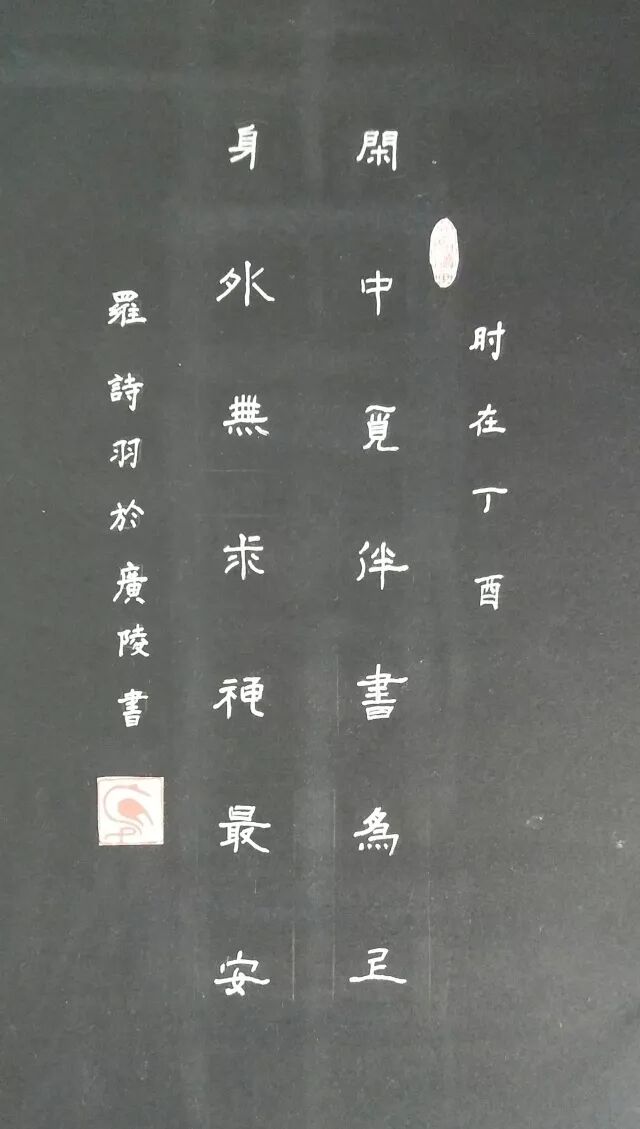 时在丁酉
閑中覓伴書為上
身外無求神最安
羅詩羽於廣陵書